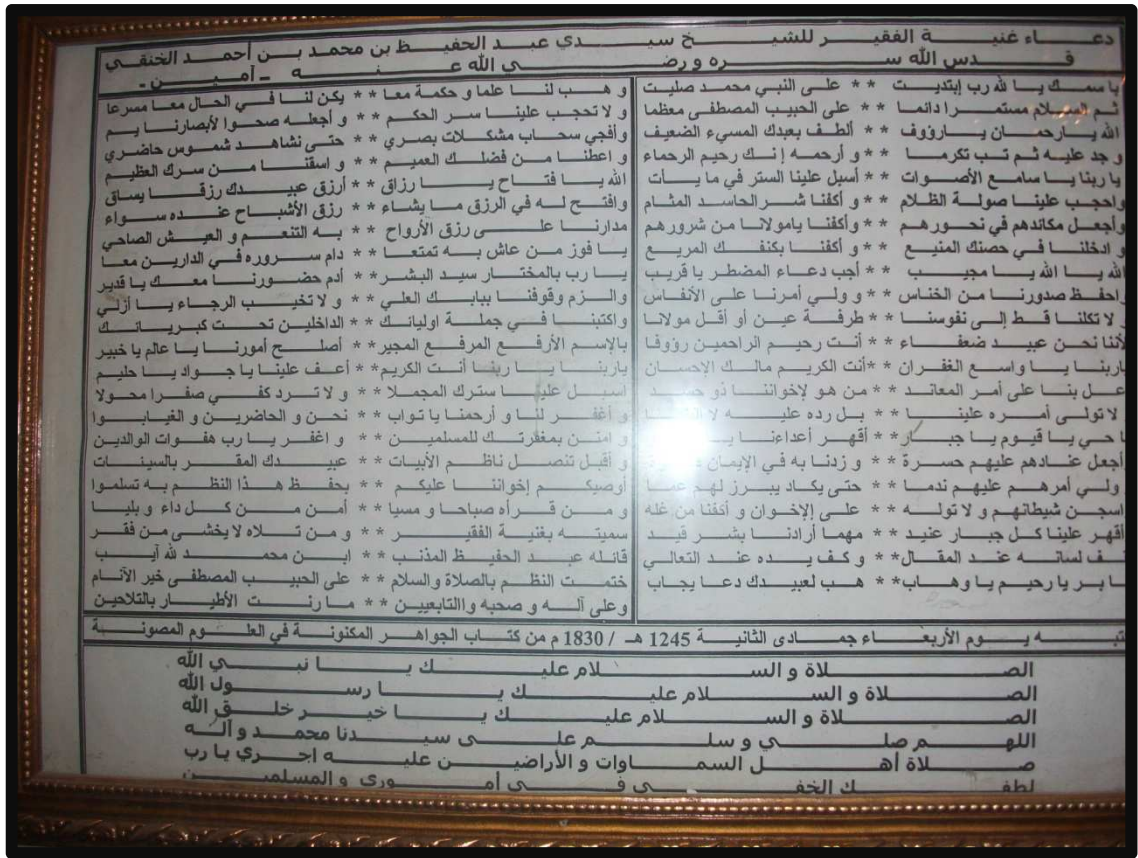 دعاء غنية الفقير للشيخ سيدي عبد الحفيظ بن محمد بن أحمد الخنقي
قدس الله سره و رضي الله عنه - أمين -
يا سمك يا لله رب إبتديت ** على النبي محمد صليت
ثم السلام مستمرا دائما ** على الحبيب المصطفى معظما
الله يا رحمان يا رؤوف ** ألطف بعبدك المسيء الضعيف
و جد عليه ثم تب تكرما ** و أرحمه إنك رحيم الرحماء
يا ربنا يا سامع الأصوات ** أسبل علينا الستر في ما يأت
واحجب علينا صولة الظلام ** و أكفنا شر الحاسد المثام
وأجعل مكائدهم في نحورهم ** وأكفنا يامولانا من شرورهم
و ادخلنا في حصنك المنيع ** و أكفنا بكنفك المريع
الله يا الله يا مجيب ** أجب دعاء المضطر يا قريب
واحفظ صدورنا من الخناس ** و ولي أمرنا على الأنفاس
و لا تكلنا قط إلى نفوسنا ** طرفة عين أو أقل مولانا
لأننا نحن عبيد ضعفاء ** أنت رحيم الراحمين رؤوفا
ياربنا يا واسع الغفران ** أنت الكريم مالك الإحسان
عل بنا على أمر المعاند ** من هو لإخواننا ذو
لا تولى أمره علينا ** بل رده عليه لا
يا حي يا قيوم يا جبار ** أقهر أعداءنا
وأجعل عنادهم عليهم حسرة ** و زدنا به في الإيمان
ولي أمرهم عليهم ندما ** حتى يكاد يبرز لهم
اسجن شيطانهم و لا توله ** على الإخوان و أكفنا من غله
أقهر علينا كل جبار عنيد ** مهما أرادنا بشر قيد
لسانه عند المقال ** و كف يده عند التعالي
يا بر يا رحيم يا وهاب ** هب لعبيدك دعا يجاب
و هب لنا علما و حكمة معا ** يكن لنا في الحال معا مسرعا
و لا تحجب علينا سر الحكم ** و أجعله صحوا لأبصارنا يم
وأفجي سحاب مشكلات بصري ** حتى نشاهد شموس حاضري
و اعطنا من فضلك العميم ** و اسقنا من سرك العظيم
الله يا فتاح يا رزاق ** أرزق عبيدك رزقا يساق
وافتح له في الرزق ما يشاء ** رزق الأشباح عنده سواء
مدارنا على رزق الأرواح ** به التنعم و العيش الصاحي
يا فوز من عاش به تمتعا ** دام سروره في الدارين معا
يا رب بالمختار سيد البشر ** أدم حضورنا معك يا قدير
والزم وقوفنا ببابك العلي ** و لا تخيب الرجاء يا أزلي
واكتبنا في جملة اوليائك ** الداخلين تحت كبريائك
بالإسم الأرفع المرفع المجير ** أصلح أمورنا يا عالم يا خبير
ياربنا يا ربنا أنت الكريم ** أعف علينا يا جواد يا حليم
اسبل علينا سترك المجملا ** و لا ترد كفي صفرا محولا
و أغفر لنا و أرحمنا يا تواب ** نحن و الحاضرين و الغيابوا
و امنن بمغفرتك للمسلمين ** و اغفر يا رب هفوات الوالدين
و أقبل تنصل ناظم الأبيات ** عبيدك المقر بالسيئات
أوصيكم إخواننا عليكم ** بحفظ هذا النظم به تسلموا
و من قرأه صباحا و مسيا ** أمن من كل داء و بليا
سميته بغنية الفقير ** و من تلاه لا يخشى من فقر
قائله عبد الحفيظ المذنب ** إبن محمد لله آيب
ختمت النظم بالصلاة والسلام ** على الحبيب المصطفى خير الأنام
وعلى آله و صحبه والتابعيين ** ما رنت الأطيار بالتلاحين
يوم الأربعاء جمادى الثانية 1245 هـ / 1830 م من كتاب الجواهر المكنونة في العلوم المصونة
الصلاة و السلام عليك يا نبي الله
الصلاة و السلام عليك يا رسول الله
الصلاة و السلام عليك يا خير خلق الله
اللهم صلي و سلم على سيدنا محمد و آله
صلاة أهل السماوات و الأراضين عليه اجري يا رب
لطفك الخفي في أموري و المسلمين